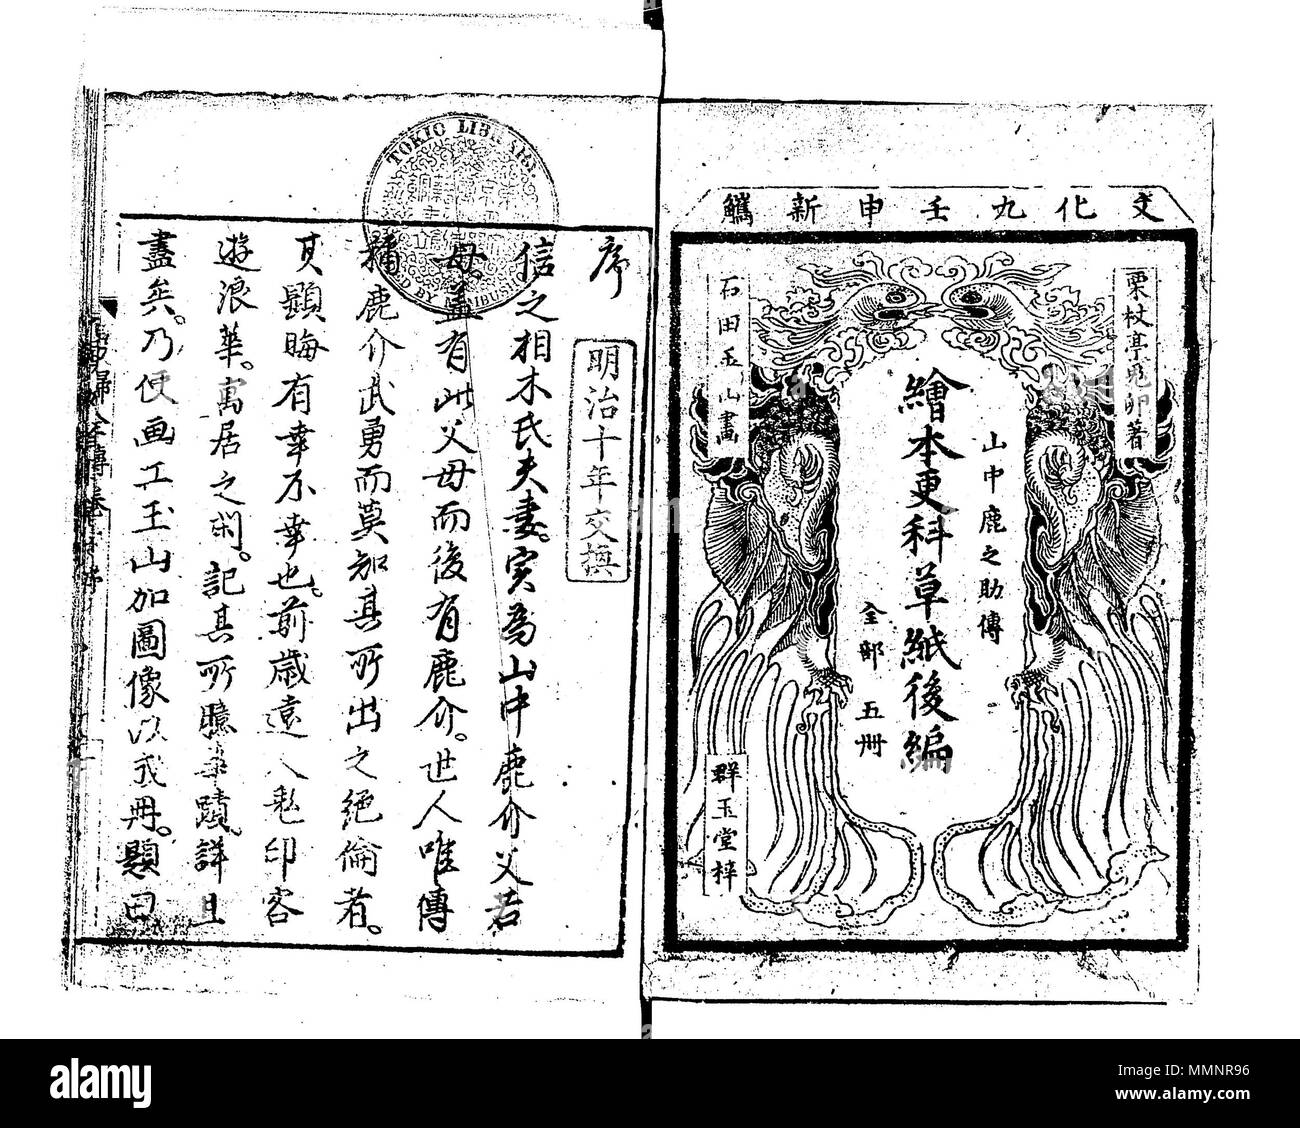 文化九壬申新鐫
栗杖亭鬼卵著
山中鹿之助傳
繪本更科草紙後編
全部五冊
石田玉山畫
群玉堂梓
TOKIO LIBRARY.
序
明治十年交換
信之相木氏夫妻。実為山中鹿介父若
母。蓋有此父母而後有鹿介。世人唯傳
稱鹿介武勇而莫知其所出之絶倫者。
其顕晦有幸不幸也。前歳遠人私印客
遊浪華。寓居之閑。記其所聴事蹟。詳且
盡矣。乃使画工玉山加圖像以成冊。題曰
alamy
Image ID: MMNR96
www.alamy.com